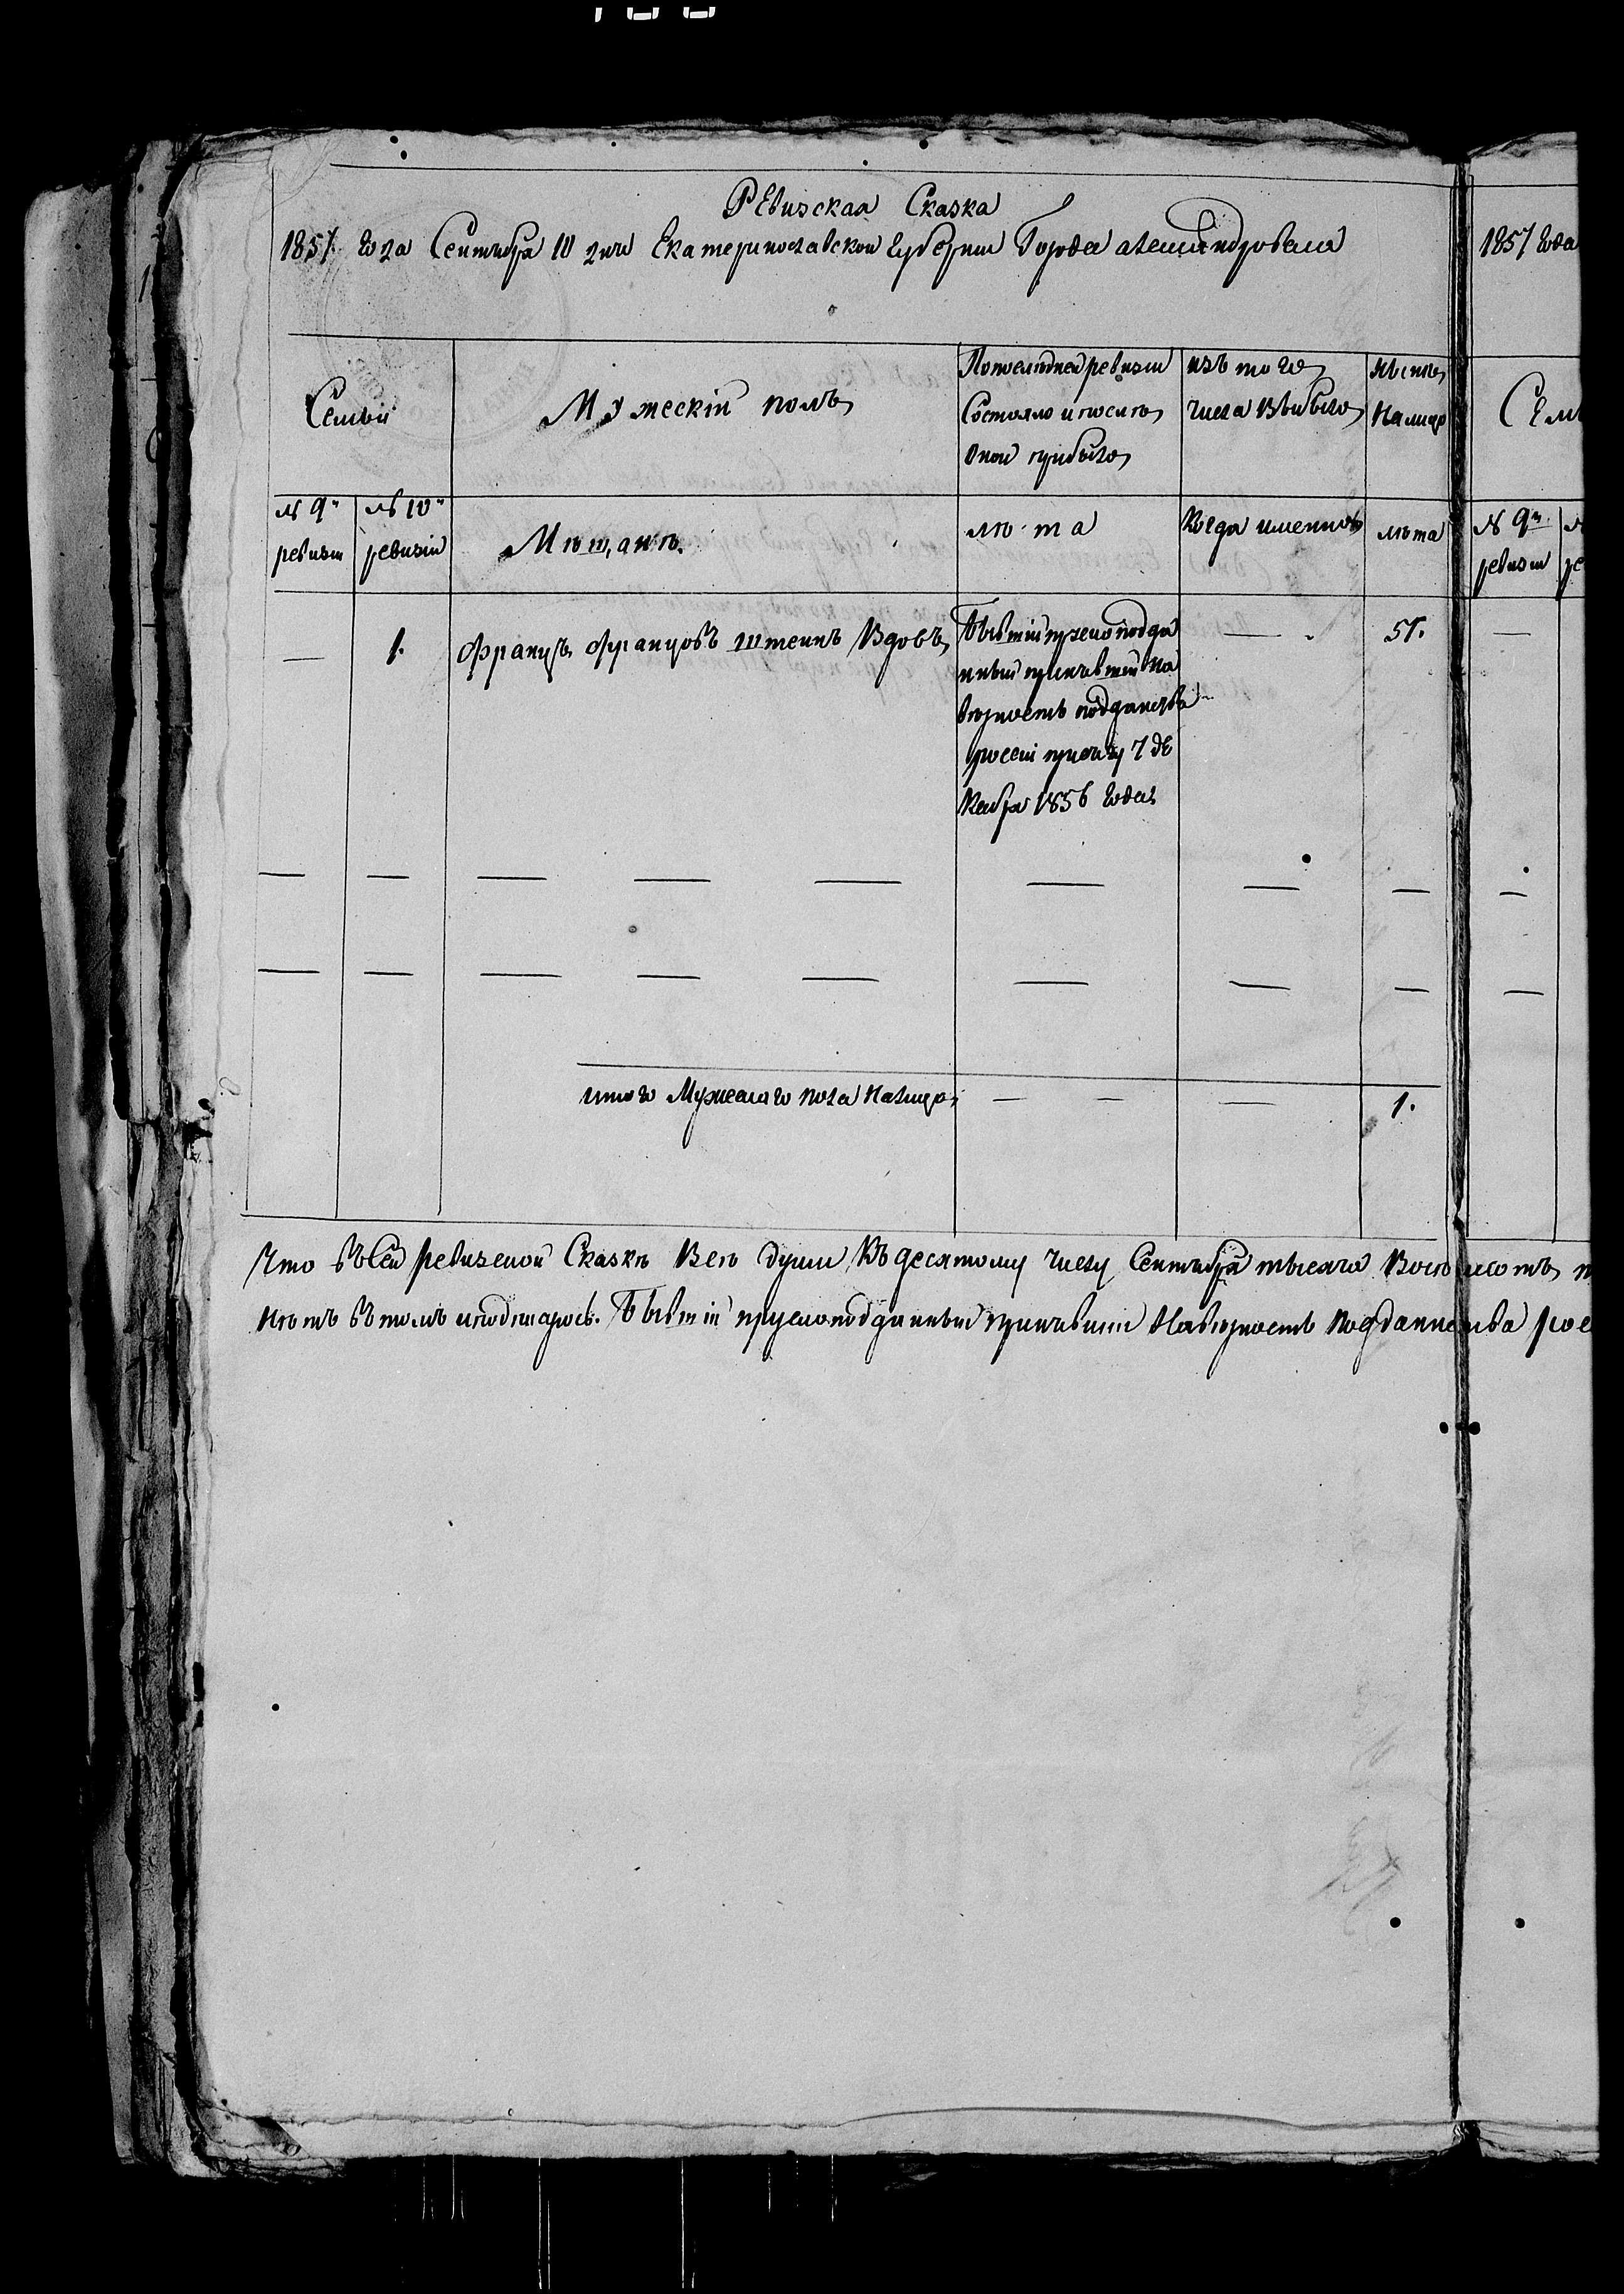 Ревизская Сказка
1857 года Сентября 10 дня Екатеринославской Губернии Города александровска
1857 года
Семьи
Мужескій полъ
По последней ревизии
Состояло и после
оной прибыло
изъ того
числа Выбыло
Ныне
На лицо
Сем
№ 9й
ревизи
№ 10й
ревизіи
Мещане.
лета
Когда именно
лета
№ 9й
ревизи
—
1.
Францъ Францовъ Штеинъ Вдовъ
Бывшіи прускоподда
нныи принявшіи на
верность подданства
россіи присягу 7 де
кабря 1856 года
—
51.
итого Мужескаго пола налицо
—
—
—
1.
Что въ сей ревизской Сказке Все души къ десятому числу Сентября тысяча Восемьсотъ
въ томъ и подписуюсь. Бывшіи прускоподданныи принявшіи На верность подданства рос